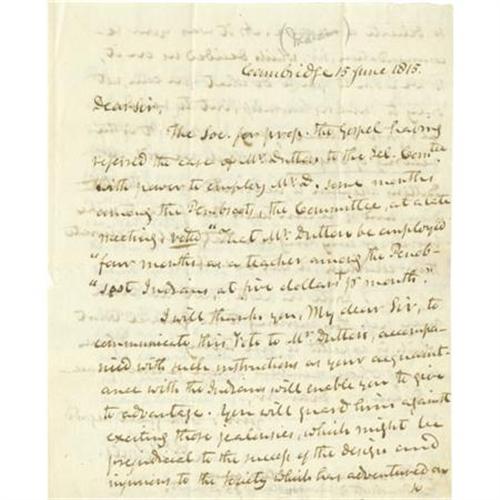 Cambridge 15 June 1815.
Dear Sir,
The Soc. for prop. the Gospel having
referred the case of Mr. Dutton to the Sel. Comtee
with power to employ Mr. D. some months
among the Penobscots, the Committee, at a late
meeting, voted "That Mr. Dutton be employed
"four months as a teacher among the Penob-
"scot Indians, at five dollars pr month."
I will thank you, My dear Sir, to
communicate this Vote to Mr. Dutton, accompa-
nied with such instructions as your acquaint-
ance with the Indians will enable you to give
to advantage. You will guard him against
exciting those jealousies, which might be
prejudicial to the success of the design and
injurious to the Society which has adventured on